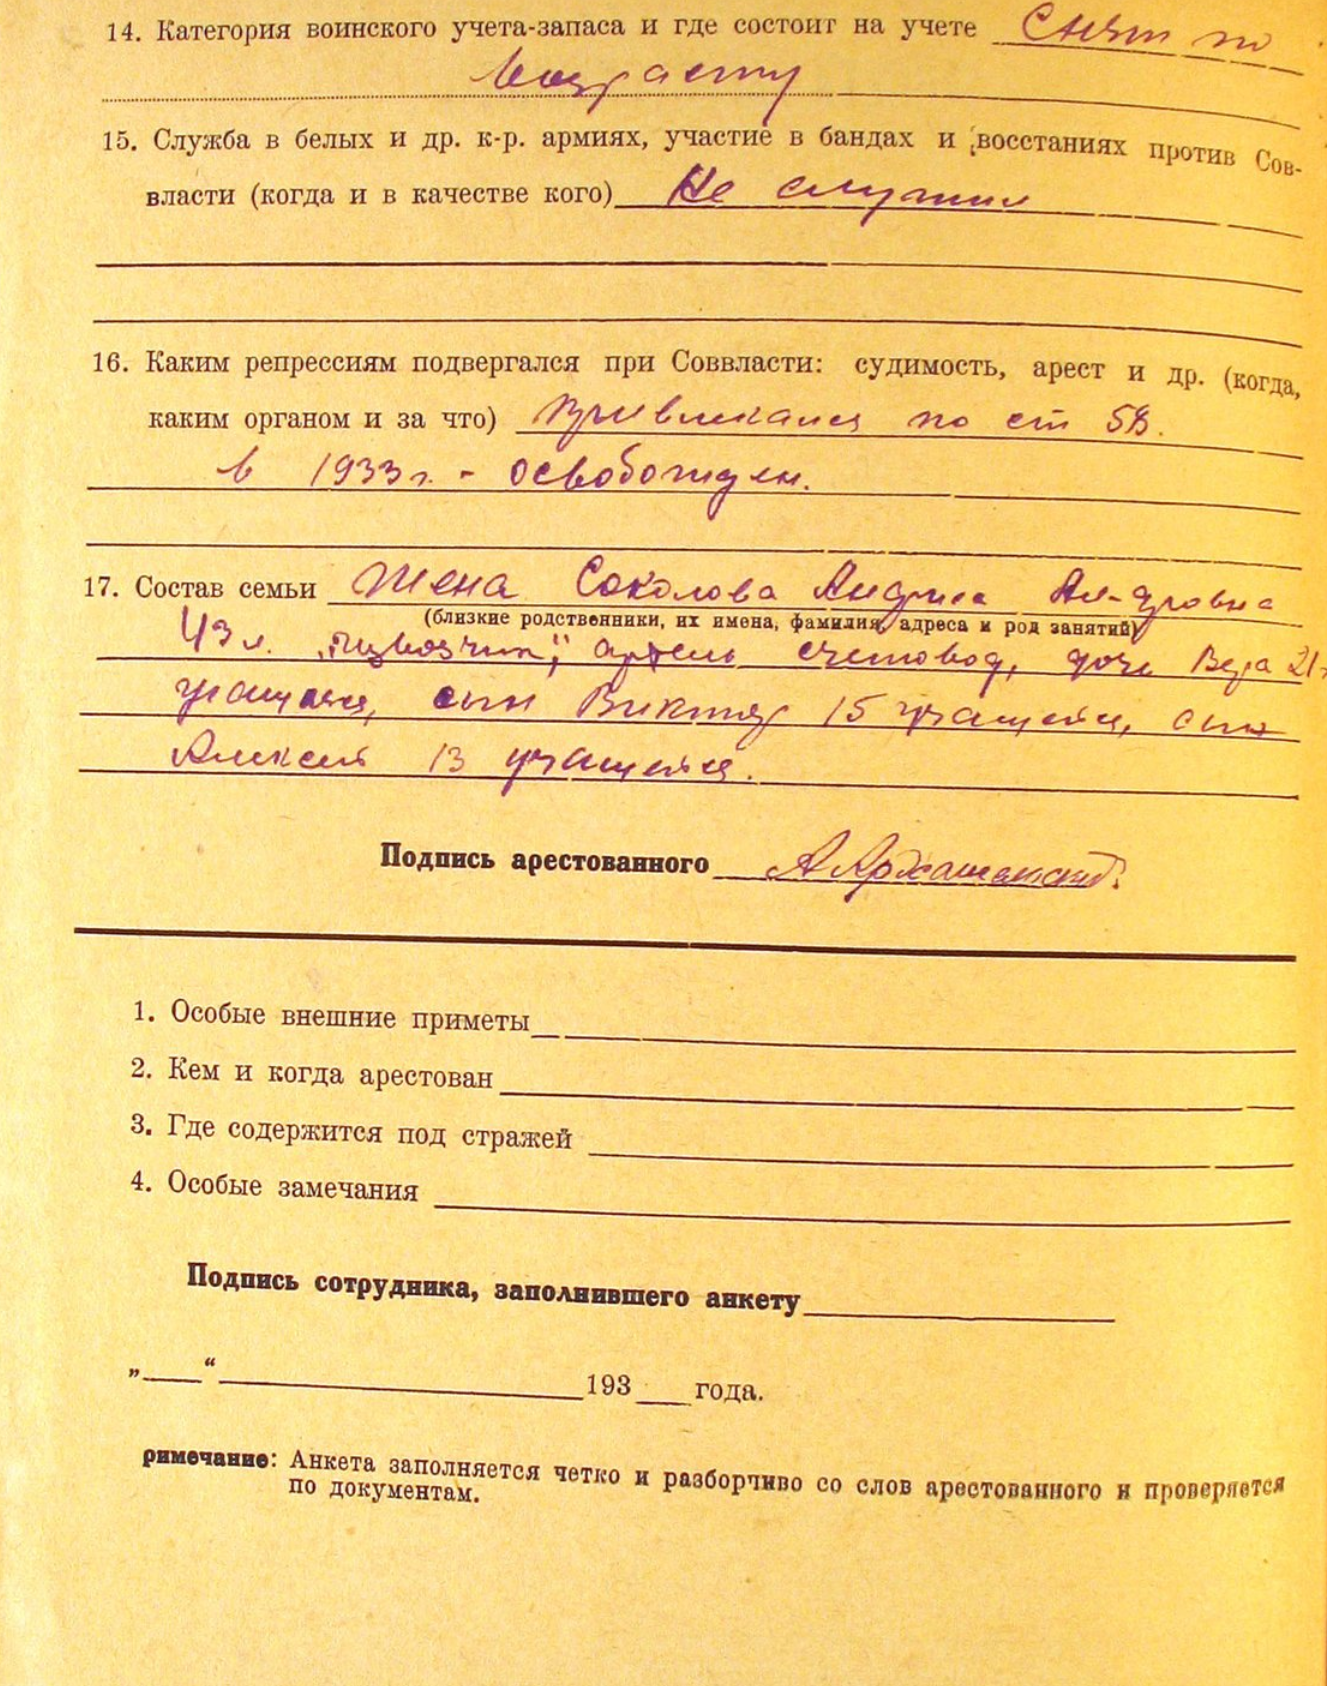 14. Категория воинского учета-запаса и где состоит на учете Снят по
возрасту
15. Служба в белых и др. к-р. армиях, участие в бандах и восстаниях против Сов-
власти (когда и в качестве кого) Не служил
16. Каким репрессиям подвергался при Соввласти: судимость, арест и др. (когда,
каким органом и за что) Привлекался по ст 58.
в 1933 г. - освобожден.
17. Состав семьи Жена Соколова Ал-дровна
(близкие родственники, их имена, фамилия, адреса и род занятий)
43 л. артель счетовод, дочь Вера 21
учащаяся, сын Виктор 15 учащейся, сын
Алексей 13 учащейся.
Подпись арестованного
1. Особые внешние приметы
2. Кем и когда арестован
3. Где содержится под стражей
4. Особые замечания
Подпись сотрудника, заполнившего анкету
„ “ 193 года.
римечание: Анкета заполняется четко и разборчиво со слов арестованного и проверяется
по документам.